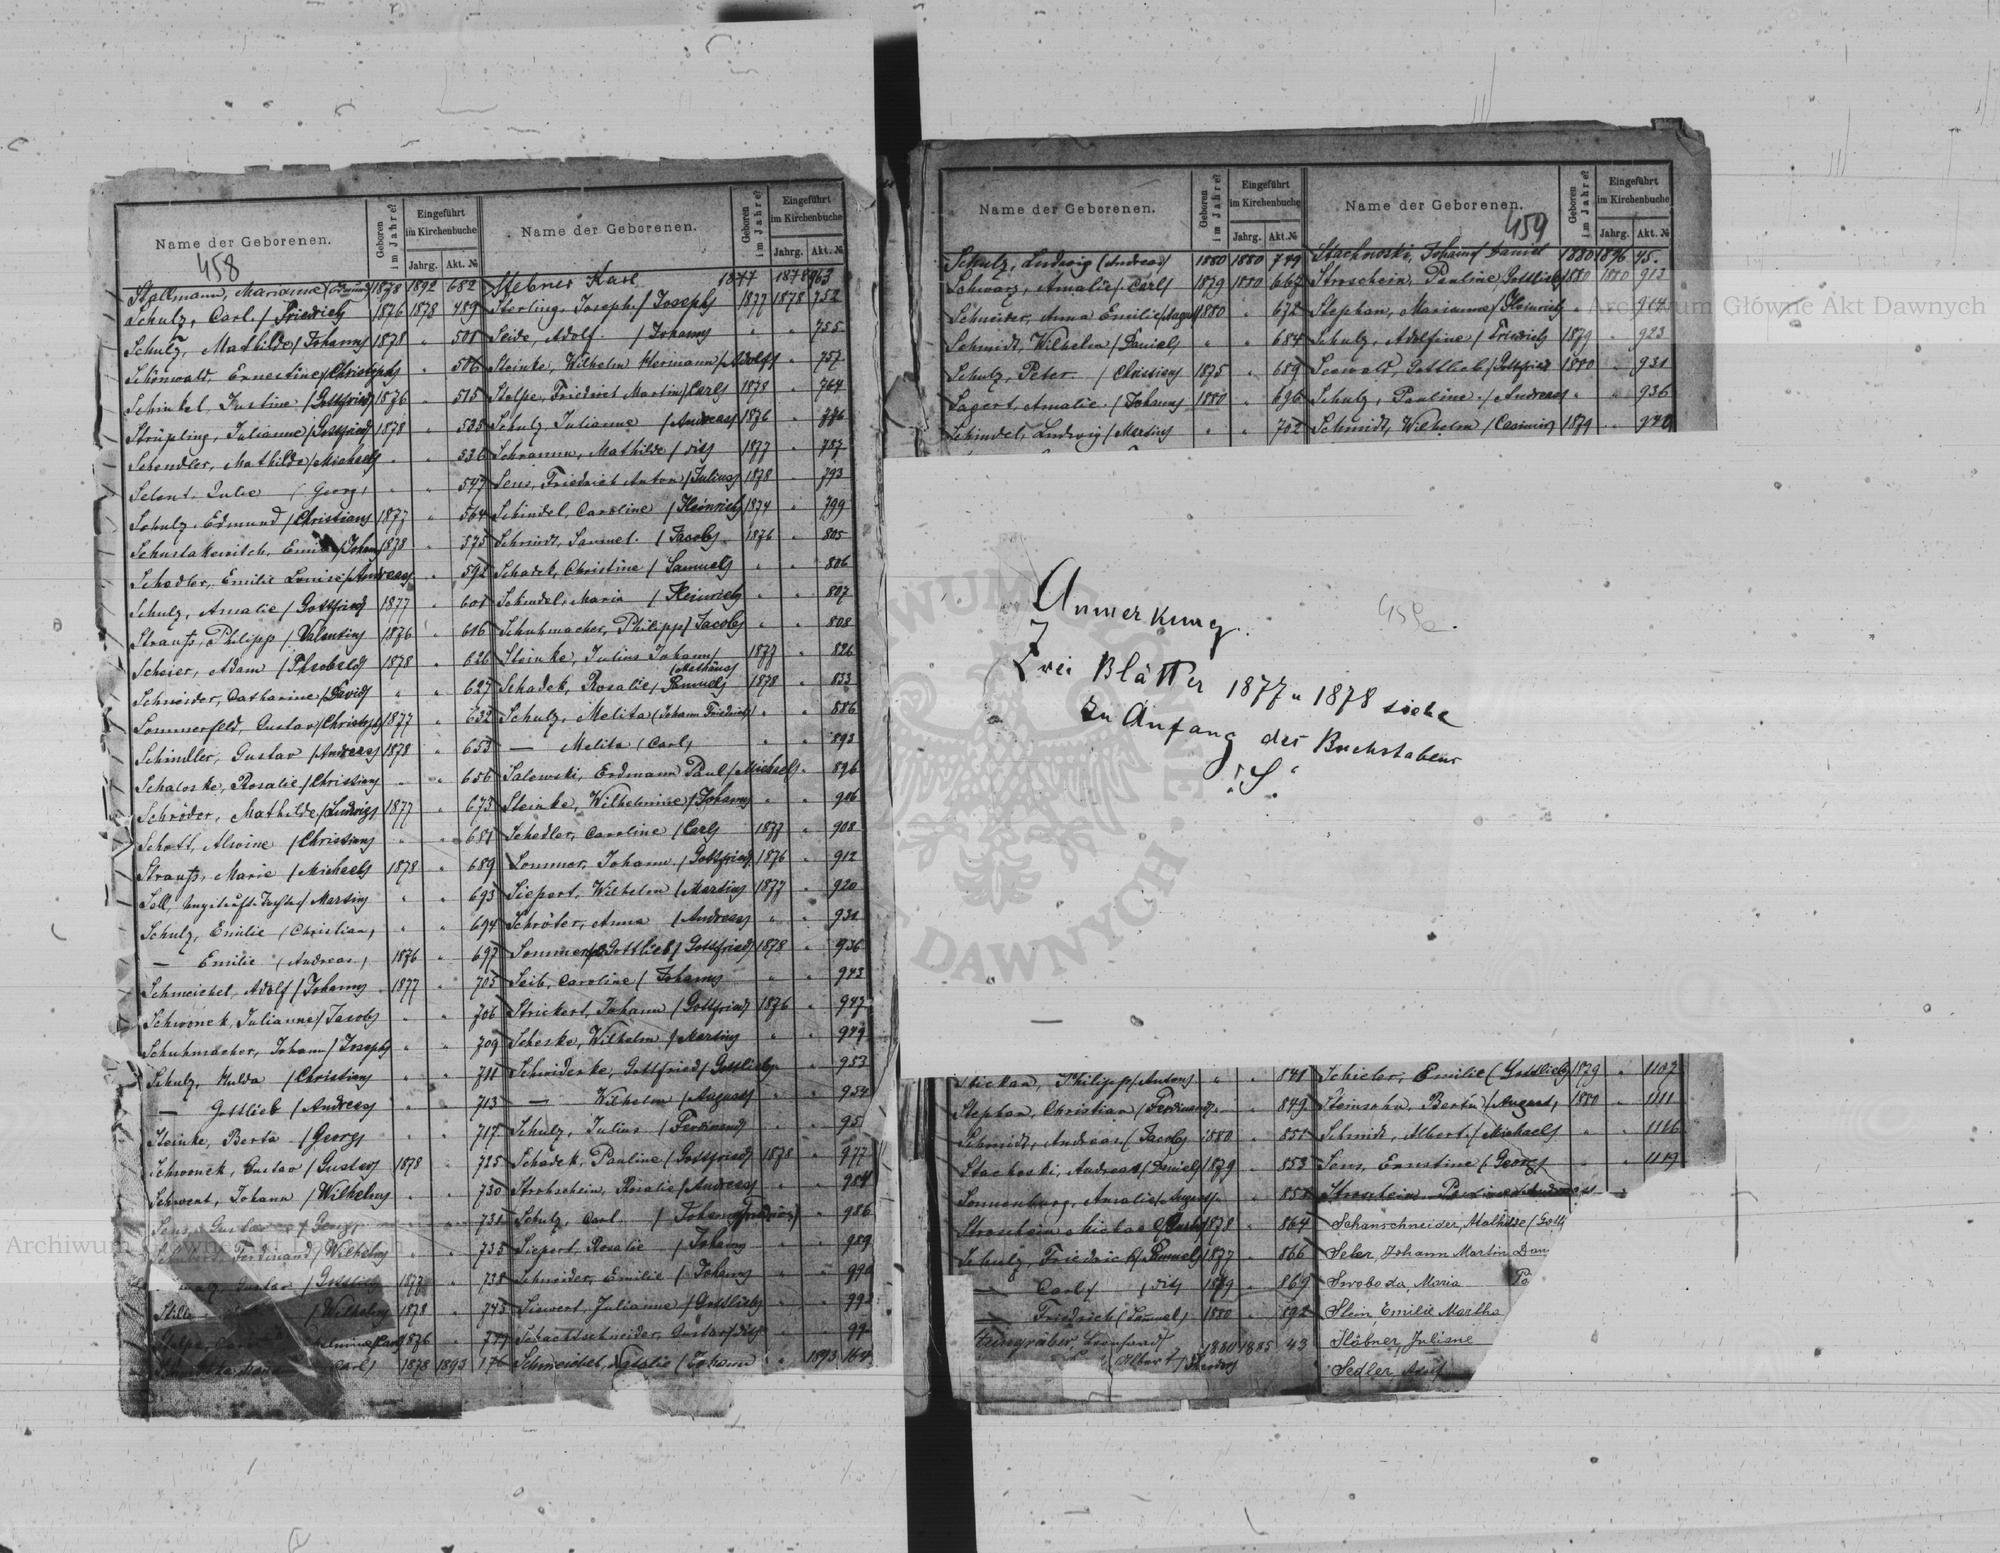 Name der Geborenen.
Geboren im Jahre?
Eingeführt im Kirchenbuche
Jahrg. Akt. №
Name der Geborenen.
Geboren im Jahre?
Eingeführt im Kirchenbuche
Jahrg. Akt. №
458
Stallmann, Marianne 1878 1892 682
Schulz, Carl / Friedrich 1876 1878 489
Schulz, Mathilde / Johann 1878 " 501
Schönwald, Ernestine / Christoph " 506
Schinkel, Justine / Gottfried 1876 " 515
Strüpling, Julianne / Gottfried 1878 " 535
Schendler, Mathilde / Michael " " 536
Selent, Julie / Georg " " 547
Schulz, Edmund / Christian 1877 " 564
Schustakewitch, Emil / Johann 1878 " 575
Schedler, Emilie Louise / Andreas " 592
Schulz, Amalie / Gottfried 1877 " 601
Strauß, Philipp / Valentin 1876 " 616
Scheier, Adam / Theobald 1878 " 626
Schneider, Catharine / David " " 627
Sommerfeld, Gustav / Christoph 1877 " 632
Schindler, Gustav / Andreas 1878 " 653
Schaloske, Rosalie / Christian " " 656
Schröder, Mathilde / Ludwig 1877 " 673
Schott, Alwine / Christian " " 681
Strauß, Marie / Michael 1878 " 689
Soll, / Martin " " 693
Schulz, Emilie / Christian " " 694
— Emilie / Andreas 1876 " 697
Schmeichel, Adolf / Johann 1877 " 705
Schwonek, Julianne / Jacob " " 706
Schuhmacher, Johann / Joseph " " 709
Schulz, Hulda / Christian " " 711
— Gottlieb / Andreas " " 713
Steinke, Berta / Georg " " 717
Schwonek, Gustav / Gustav 1878 " 725
Schwent, Johann / Wilhelm " " 730
Sens, Gustav / Georg " " 731
Ferdinand / Wilhelm " " 735
Gustav / Gottlieb 1877 " 738
/ Wilhelm 1878 " 745
1876 "
Carl 1878 1893 176
Stebner Karl 1877 1878 963
Sterling, Joseph / Joseph 1877 1878 752
Seide, Adolf / Johann " " 755
Steinke, Wilhelm Hermann / Adolf " 757
Stolpe, Friedrich Martin / Carl 1878 " 764
Schulz, Julianne / Andreas 1876 " 776
Schramm, Mathilde / 1877 " 787
Sens, Friedrich Anton / Julius 1878 " 793
Schindel, Caroline / Heinrich 1874 " 799
Schmidt, Samuel / Jacob 1876 " 805
Schadek, Christine / Samuel " " 806
Schindel, Maria / Heinrich " " 807
Schuhmacher, Philipp / Jacob " " 808
Steinke, Julius Johann / Mathäus 1877 " 826
Schadek, Rosalie / Samuel 1878 " 833
Schulz, Melita (Johann Friedrich) " " 886
— Melita (Carl) " " 893
Salewski, Erdmann Paul / Michael " 896
Steinke, Wilhelmine / Johann " " 906
Schedler, Caroline / Carl 1877 " 908
Sommer, Johann / Gottfried 1876 " 912
Siepert, Wilhelm / Martin 1877 " 920
Schröter, Anna / Andreas " " 931
Sommerfeld, Gottlieb / Gottfried 1878 " 936
Seib, Caroline / Johann " " 943
Strickert, Johann / Gottfried 1876 " 947
Scheske, Wilhelm / Martin " " 949
Schwiderke, Gottfried / Gottlieb " " 953
— Wilhelm / August " " 954
Schulz, Julius / Ferdinand " " 95
Schadek, Pauline / Gottfried 1878 " 977
Strohschein, Rosalie / Andreas " " 984
Schulz, Carl / Johann Friedrich " 986
Siepert, Rosalie / Johann " " 989
Schneider, Emilie / Johann " " 990
Siewert, Julianne / Gottlieb " " 992
Schachtschneider, Gustav / " " 99
Schmeichel, Natalie / Johann " 1893 164
Name der Geborenen.
Geboren im Jahre?
Eingeführt im Kirchenbuche
Jahrg. Akt. №
Name der Geborenen.
Geboren im Jahre?
Eingeführt im Kirchenbuche
Jahrg. Akt. №
459
Schulz, Ludwig (Andreas) 1880 1880 749
Schwarz, Amalie / Carl 1879 1880 667
Schneider, Anna Emilie / August 1880 " 672
Schmidt, Wilhelm / Daniel " " 684
Schulz, Peter / Christian 1875 " 689
Sagert, Amalie / Johann 1880 " 696
Schindel, Ludwig / Martin " " 702
Stachowski, Johann Daniel 1880 1896 45.
Stroschein, Pauline / Gottlieb 1880 1880 913
Stephan, Marianna / Heinrich " " 914
Schulz, Adolfine / Friedrich 1879 " 923
Seewald, Gottlieb / Gottfried 1880 " 931
Schulz, Pauline / Andreas " " 936
Schmidt, Wilhelm / Casimir 1879 " 940
Anmerkung.
Zwei Blätter 1877 u 1878 siehe
zu Anfang des Buchstabens
"S"
Philipp / Anton " " 841
Stephan, Christian / Ferdinand " " 849
Schmidt, Andreas / Jacob 1880 " 851
Stachoski, Andreas / Daniel 1879 " 853
Sonnenburg, Amalie / August "
Stroschein 1878 " 864
Schulz, Friedrich / Samuel 1877 " 866
— Carl / 1879 " 869
— Friedrich (Samuel) 1880 " 892
1880 1885 43
Schieler, Emilie (Gottlieb 1879 " 1107
Steinsohn, Berta / August, 1880 " 1111
Schmidt, Albert / Michael " " 1116
Sens, Ernstine / Georg " " 1119
Schanschneider, Mathilde / Gott
Seler, Johann Martin Dan
Swoboda, Maria
Stein, Emilie Martha
Stöbner, Juliane
Sedler, Adolf
Archiwum Główne Akt Dawnych
Archiwum Główne Akt Dawnych